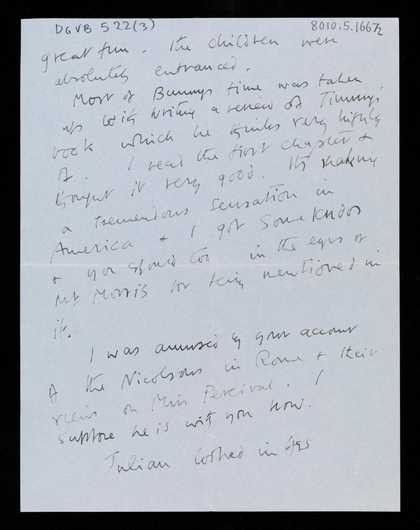 DGVB 522(3)
8010.5.1667/2
great fun. The children were
absolutely entranced.
Most of Bunnys time was taken
up with writing a review of Timmys
book which he thinks very highly
of. I read the first chapter &
thought it very good. Its making
a tremendous sensation in
America & I got some Kudos
& you should too in the eyes of
Mr Morris for being mentioned in
it.
I was amused by your account
of the Nicolsons in Rome & their
views on Miss Percival. I
suppose he is with you now.
Julian looked in